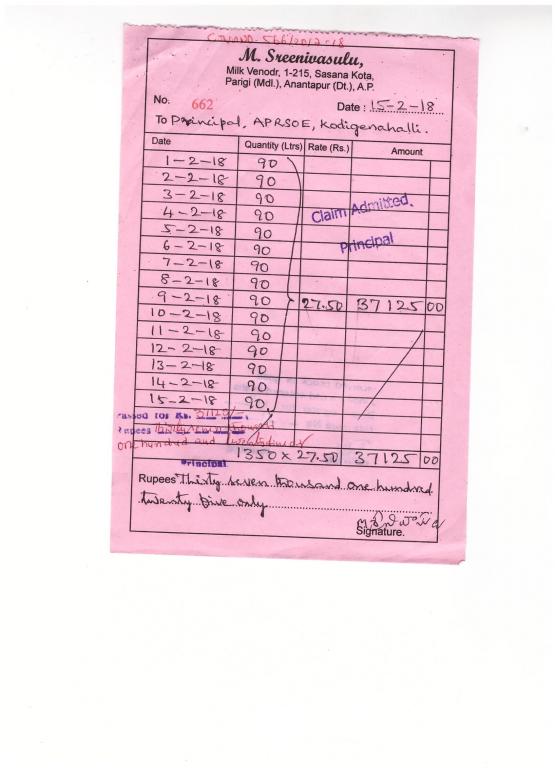 M. Sreenivasulu,
Milk Venodr, 1-215, Sasana Kota,
Parigi (Mdl.), Anantapur (Dt.), A.P.
No. 662
Date : 15-2-18
To Principal, APRSOE, Kodigenahalli.
Date Quantity (Ltrs) Rate (Rs.) Amount
1-2-18 90
2-2-18 90
3-2-18 90
4-2-18 90
5-2-18 90
6-2-18 90
7-2-18 90
8-2-18 90
9-2-18 90 27.50 37125 00
10-2-18 90
11-2-18 90
12-2-18 90
13-2-18 90
14-2-18 90
15-2-18 90
Claim Admitted.
Principal
Passed for Rs.
Rupees
one hundred and
Principal
1350 x 27.50 37125 00
Rupees Thirty seven thousand one hundred
twenty five only
Signature.